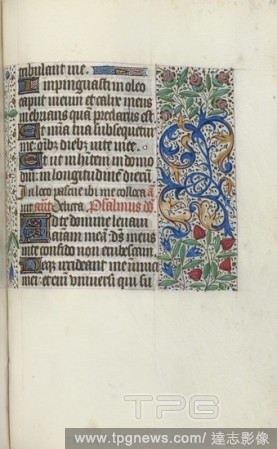 tribulant me.
Inpinguasti in oleo
caput meum et calix meus
inebrians quā preclarus est
Et mīa tua subsequetur
me. oībz diebz vite mee.
Et ut inhītem in domo
dnī in longitudinē dierū.
In loco pascue ibi me collocavit
ant Psalmus dd
Ad te domine levavi
aīam meā. ds meus
in te confido non erubescam.
Neqz irrideant me inimici
mei. etenī universi qui su
TPG
www.tpgnews.com/達志影像